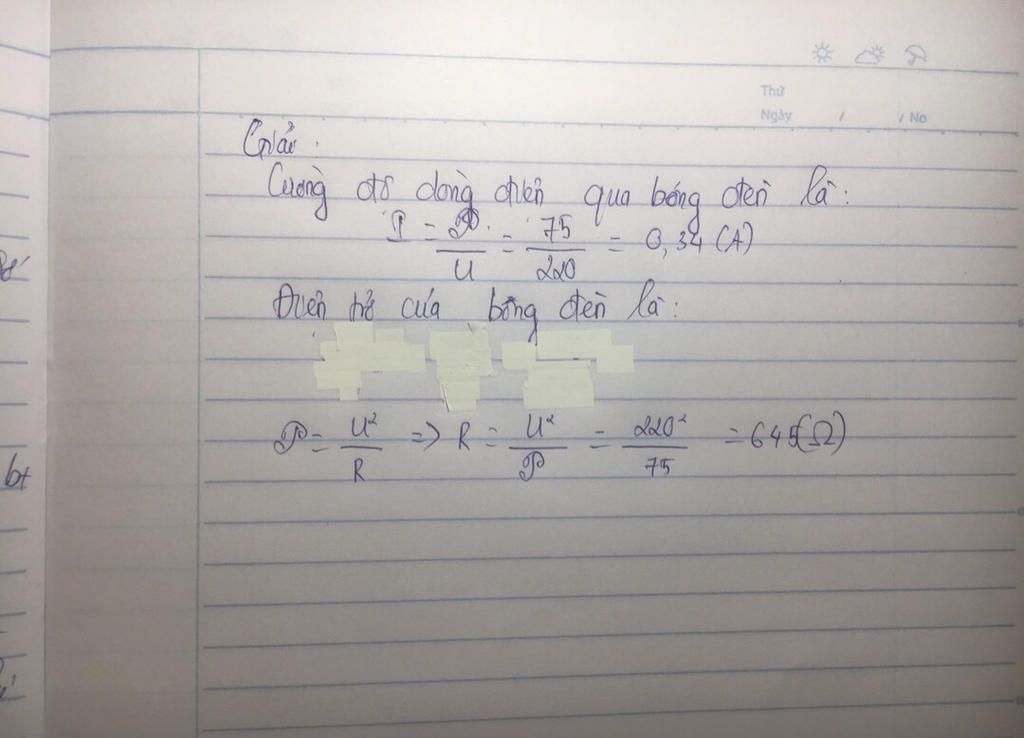 Thứ
Ngày / / No
Giải:
Cường độ dòng điện qua bóng đèn là:
I = P/U = 75/220 = 0,34 (A)
Điện trở của bóng đèn là:
P = U²/R => R = U²/P = 220²/75 = 645(Ω)
bt